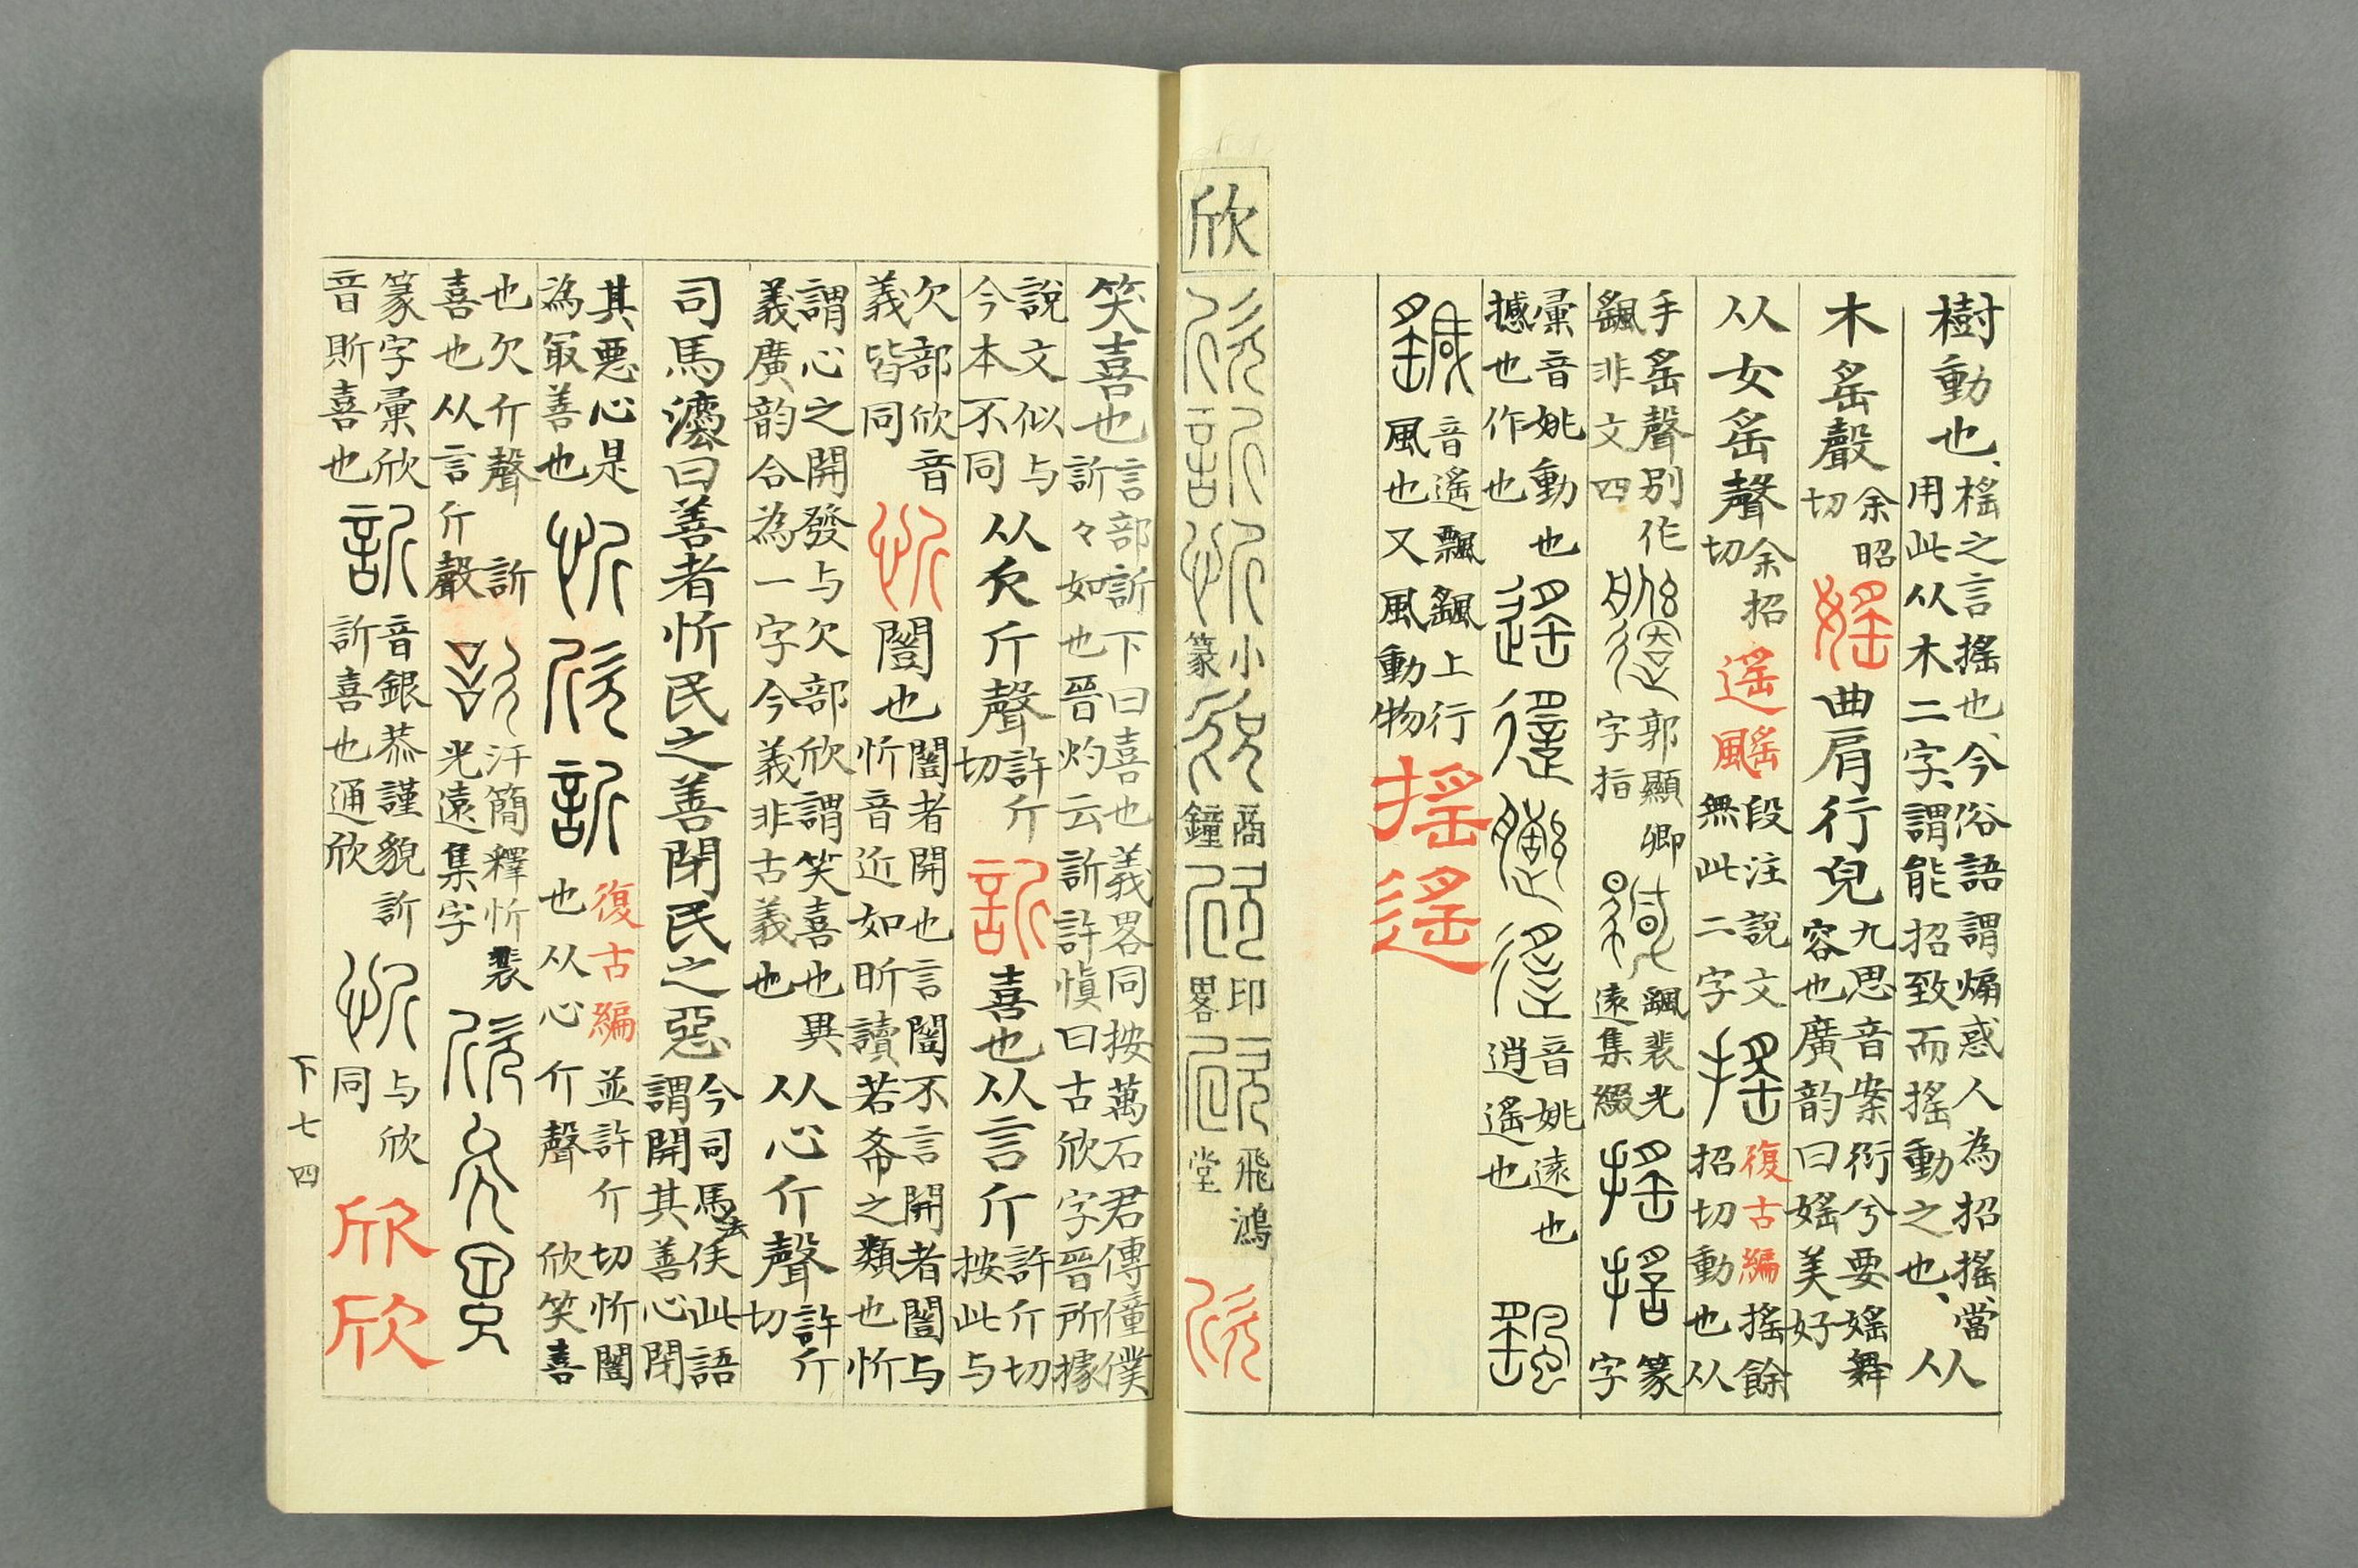 樹動也、榣之言搖也、今俗語謂煽惑人為招搖、當用此从木二字、謂能招致而搖動之也、从
木䍃聲余昭切媱曲肩行皃九思音案衍兮要媱舞容也廣韵曰媱美好
从女䍃聲余招切遥颻段注說文無此二字搖復古編搖餘招切動也从
手䍃聲別作颻非文四郭顯卿字指颻裴光遠集綴篆字
彙音姚動也撼也作也音姚遠也逍遙也
音遙飄颻上行風也又風動物搖遙
欣
欣訢忻小篆商鐘印畧飛鴻堂欣
笑喜也言部訢下曰喜也義畧同按萬石君傳僮僕訢々如也晉灼云訢許愼曰古欣字晉所據
說文似与今本不同从欠斤聲許斤切訢喜也从言斤許斤切按此与
欠部欣音義皆同忻闓也闓者開也言闓不言開者闓与忻音近如昕讀若希之類也忻
謂心之開發与欠部欣謂笑喜也異義廣韵合為一字今義非古義也从心斤聲許斤切
司馬灋曰善者忻民之善閉民之惡今司馬法佚此語謂開其善心閉
其惡心是為冣善也忻欣訢復古編並許斤切忻闓也从心斤聲欣笑喜
也欠斤聲訢喜也从言斤聲汗簡釋忻裴光遠集字
篆字彙欣音斦喜也訢音銀恭謹貌訢訢喜也通欣忻与欣同欣欣
下七四